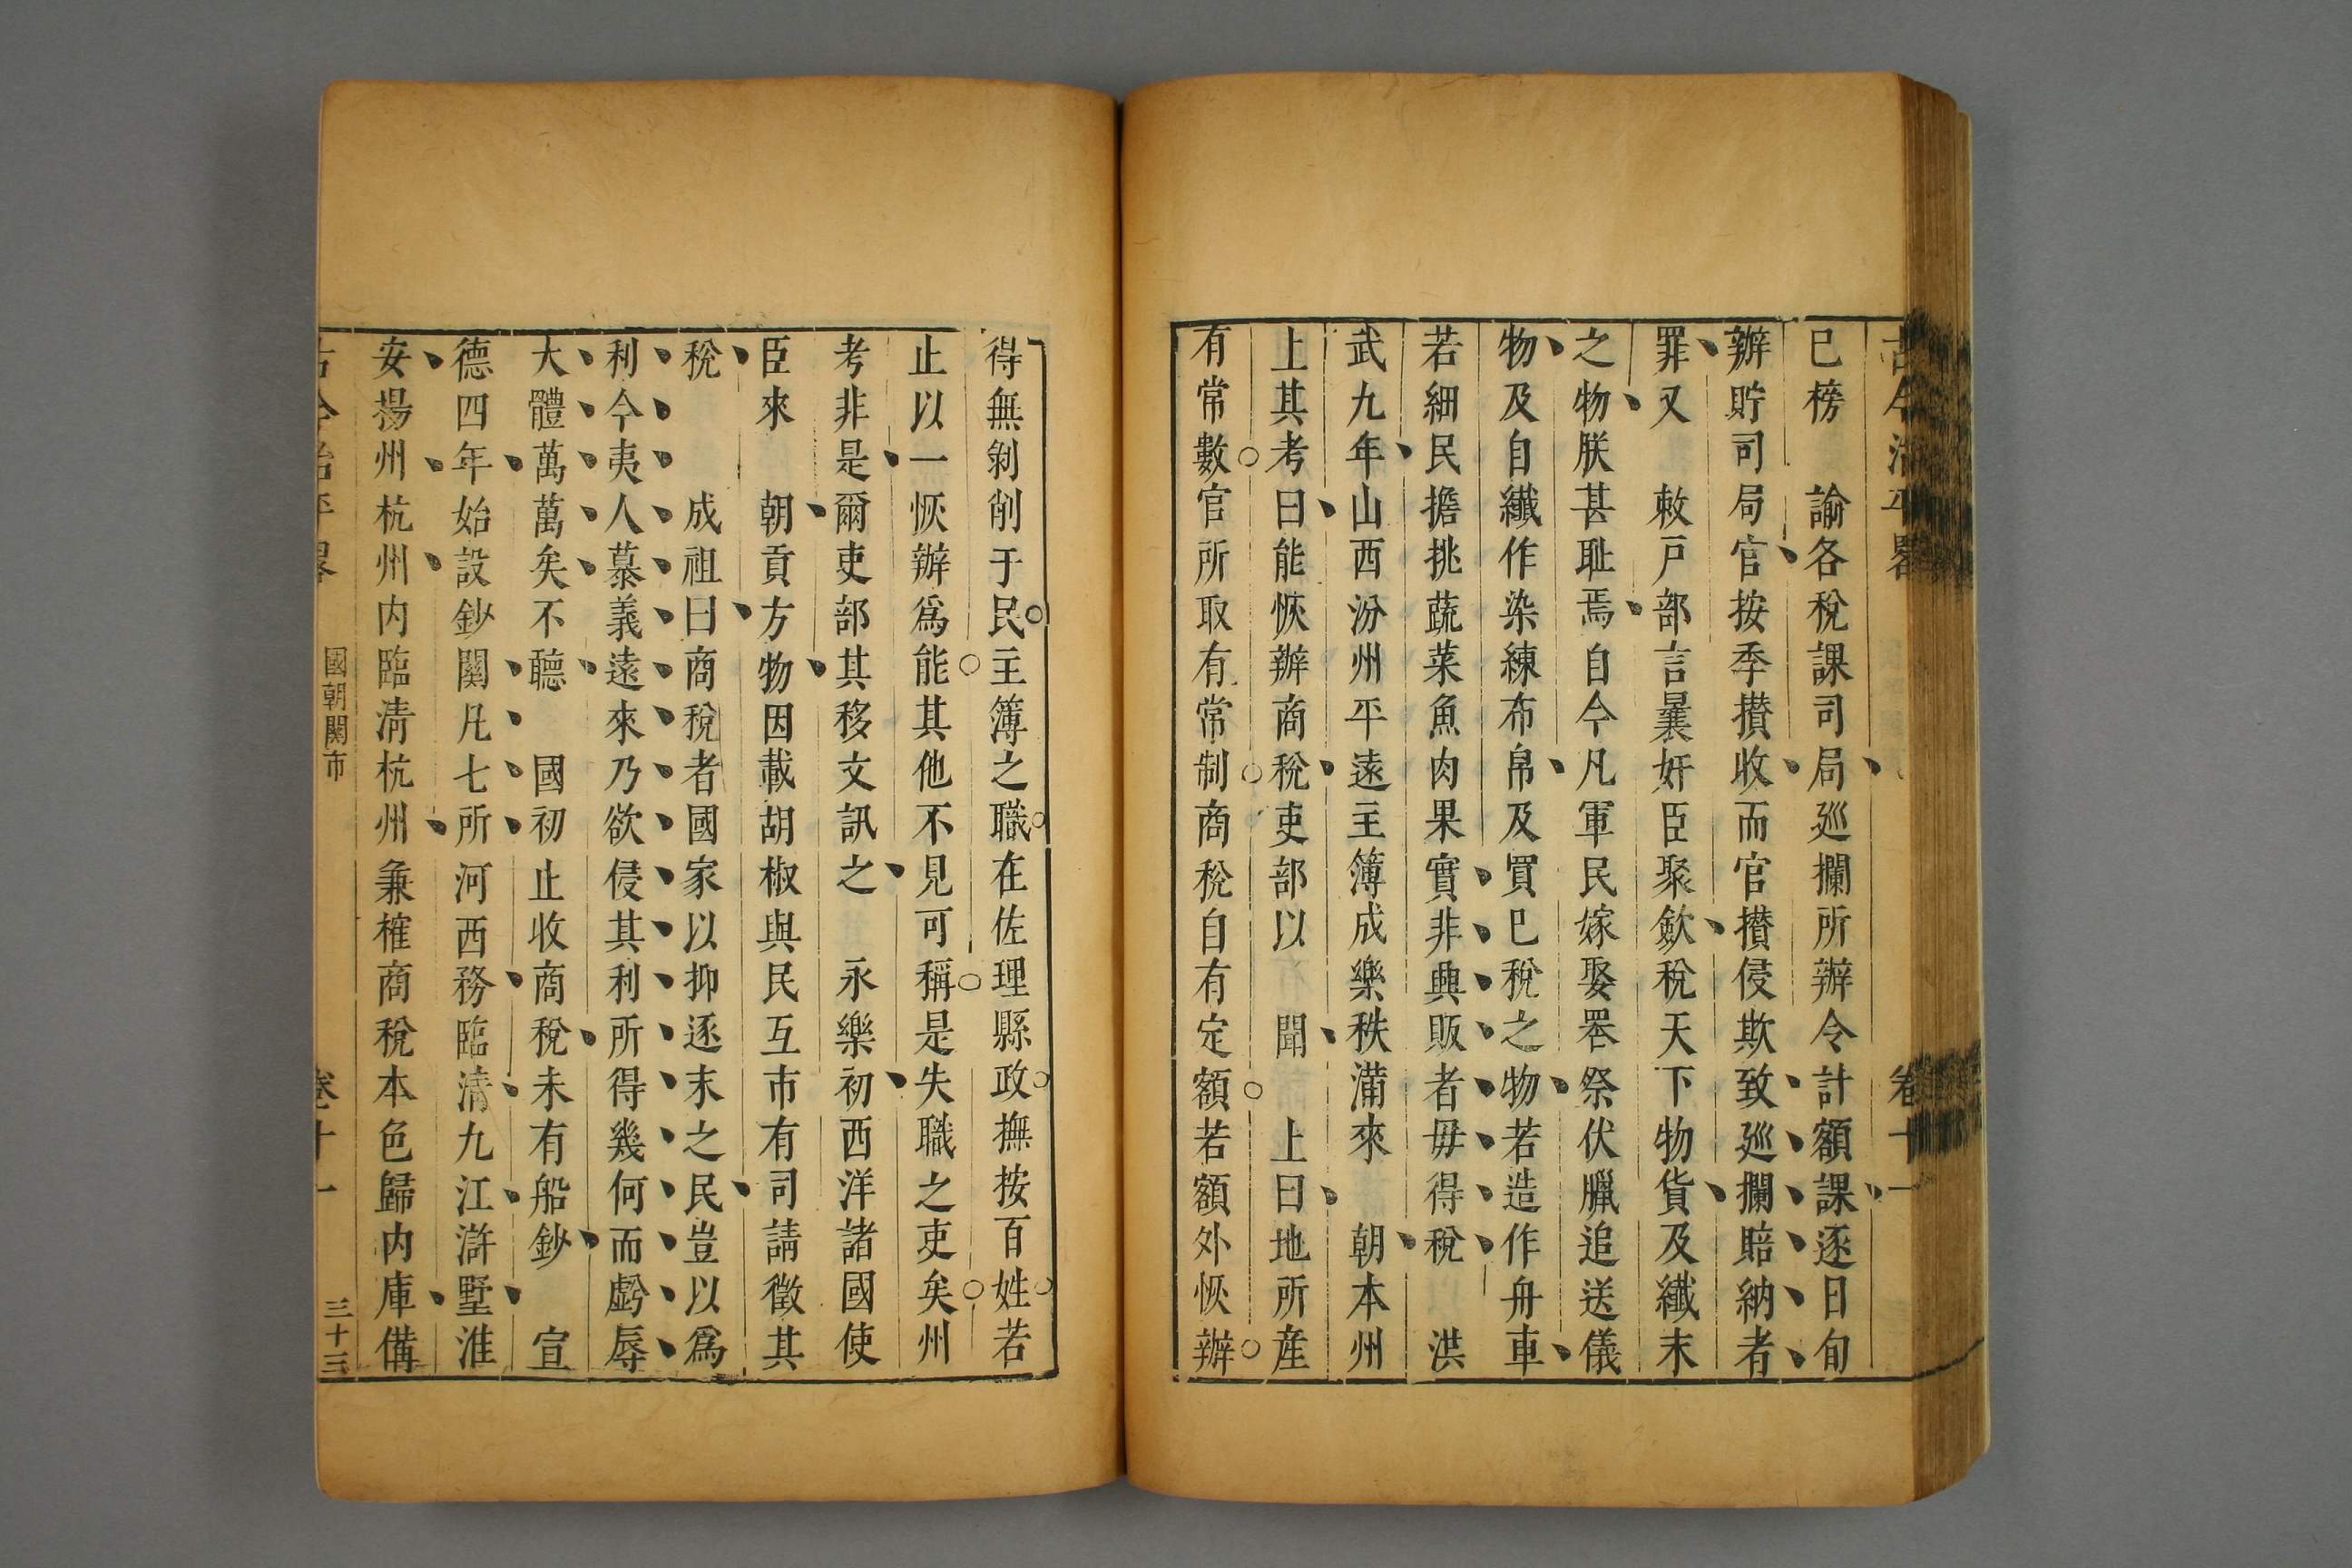 古今治平畧 卷十一
已榜 諭各稅課司局廵攔所辦令計額課逐日旬
辦貯司局官按季攅收而官攅侵欺致廵攔賠納者
罪又 敕戸部言曩奸臣聚歛稅天下物貨及纖末
之物朕甚耻焉自今凡軍民嫁娶䘮祭伏臘追送儀
物及自織作染練布帛及買巳稅之物若造作舟車
若細民擔挑蔬菜魚肉果實非興販者毋得稅 洪
武九年山西汾州平遠主簿成樂秩滿來 朝本州
上其考曰能恢辦商稅吏部以 聞 上曰地所産
有常數官所取有常制商稅自有定額若額外恢辦
得無剝削于民主簿之職在佐理縣政撫按百姓若
止以一恢辦爲能其他不見可稱是失職之吏矣州
考非是爾吏部其移文訊之 永樂初西洋諸國使
臣來 朝貢方物因載胡椒與民互市有司請徵其
稅 成祖曰商稅者國家以抑逐末之民豈以爲
利今夷人慕義遠來乃欲侵其利所得幾何而虧辱
大體萬萬矣不聽 國初止收商稅未有船鈔 宣
德四年始設鈔關凡七所河西務臨清九江滸墅淮
安揚州杭州内臨清杭州兼榷商稅本色歸内庫備
古今治平畧 國朝関市 卷十一 三十三